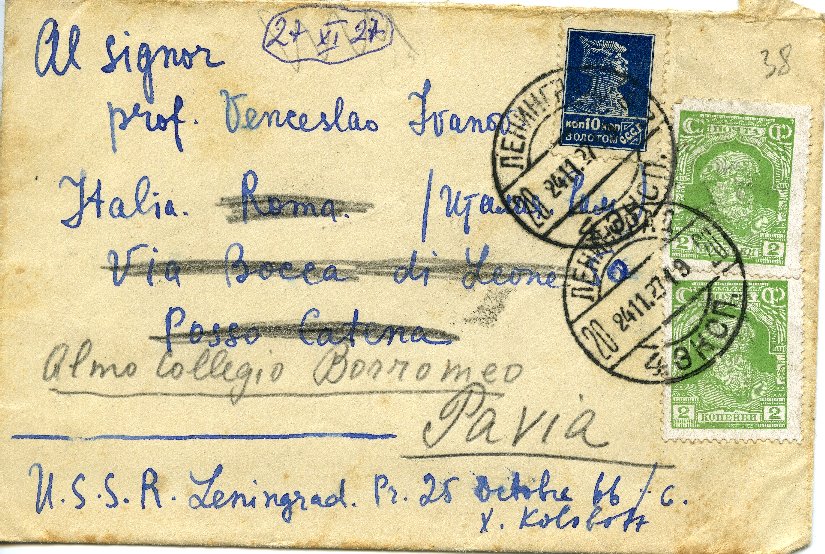 27 XI 27
Al signor
prof. Venceslao Ivanov
38
КОП 10 КОП
ЗОЛОТОМ СССР
ЛЕНИНГРАД
20 24.11.27
ЭКСП.
Italia. Roma. /Италия Рим/
ПОЧТА
2 2
Via Bocca di Leone
Posso Catena
ЛЕНИНГРАД
20 24.11.27.19
ЭКСП.
Almo Collegio Borromeo
Pavia
2 КОПЕЙКИ 2
U.S.S.R. Leningrad. Pr. 25 Octobre 66/6.
X. Koloboff